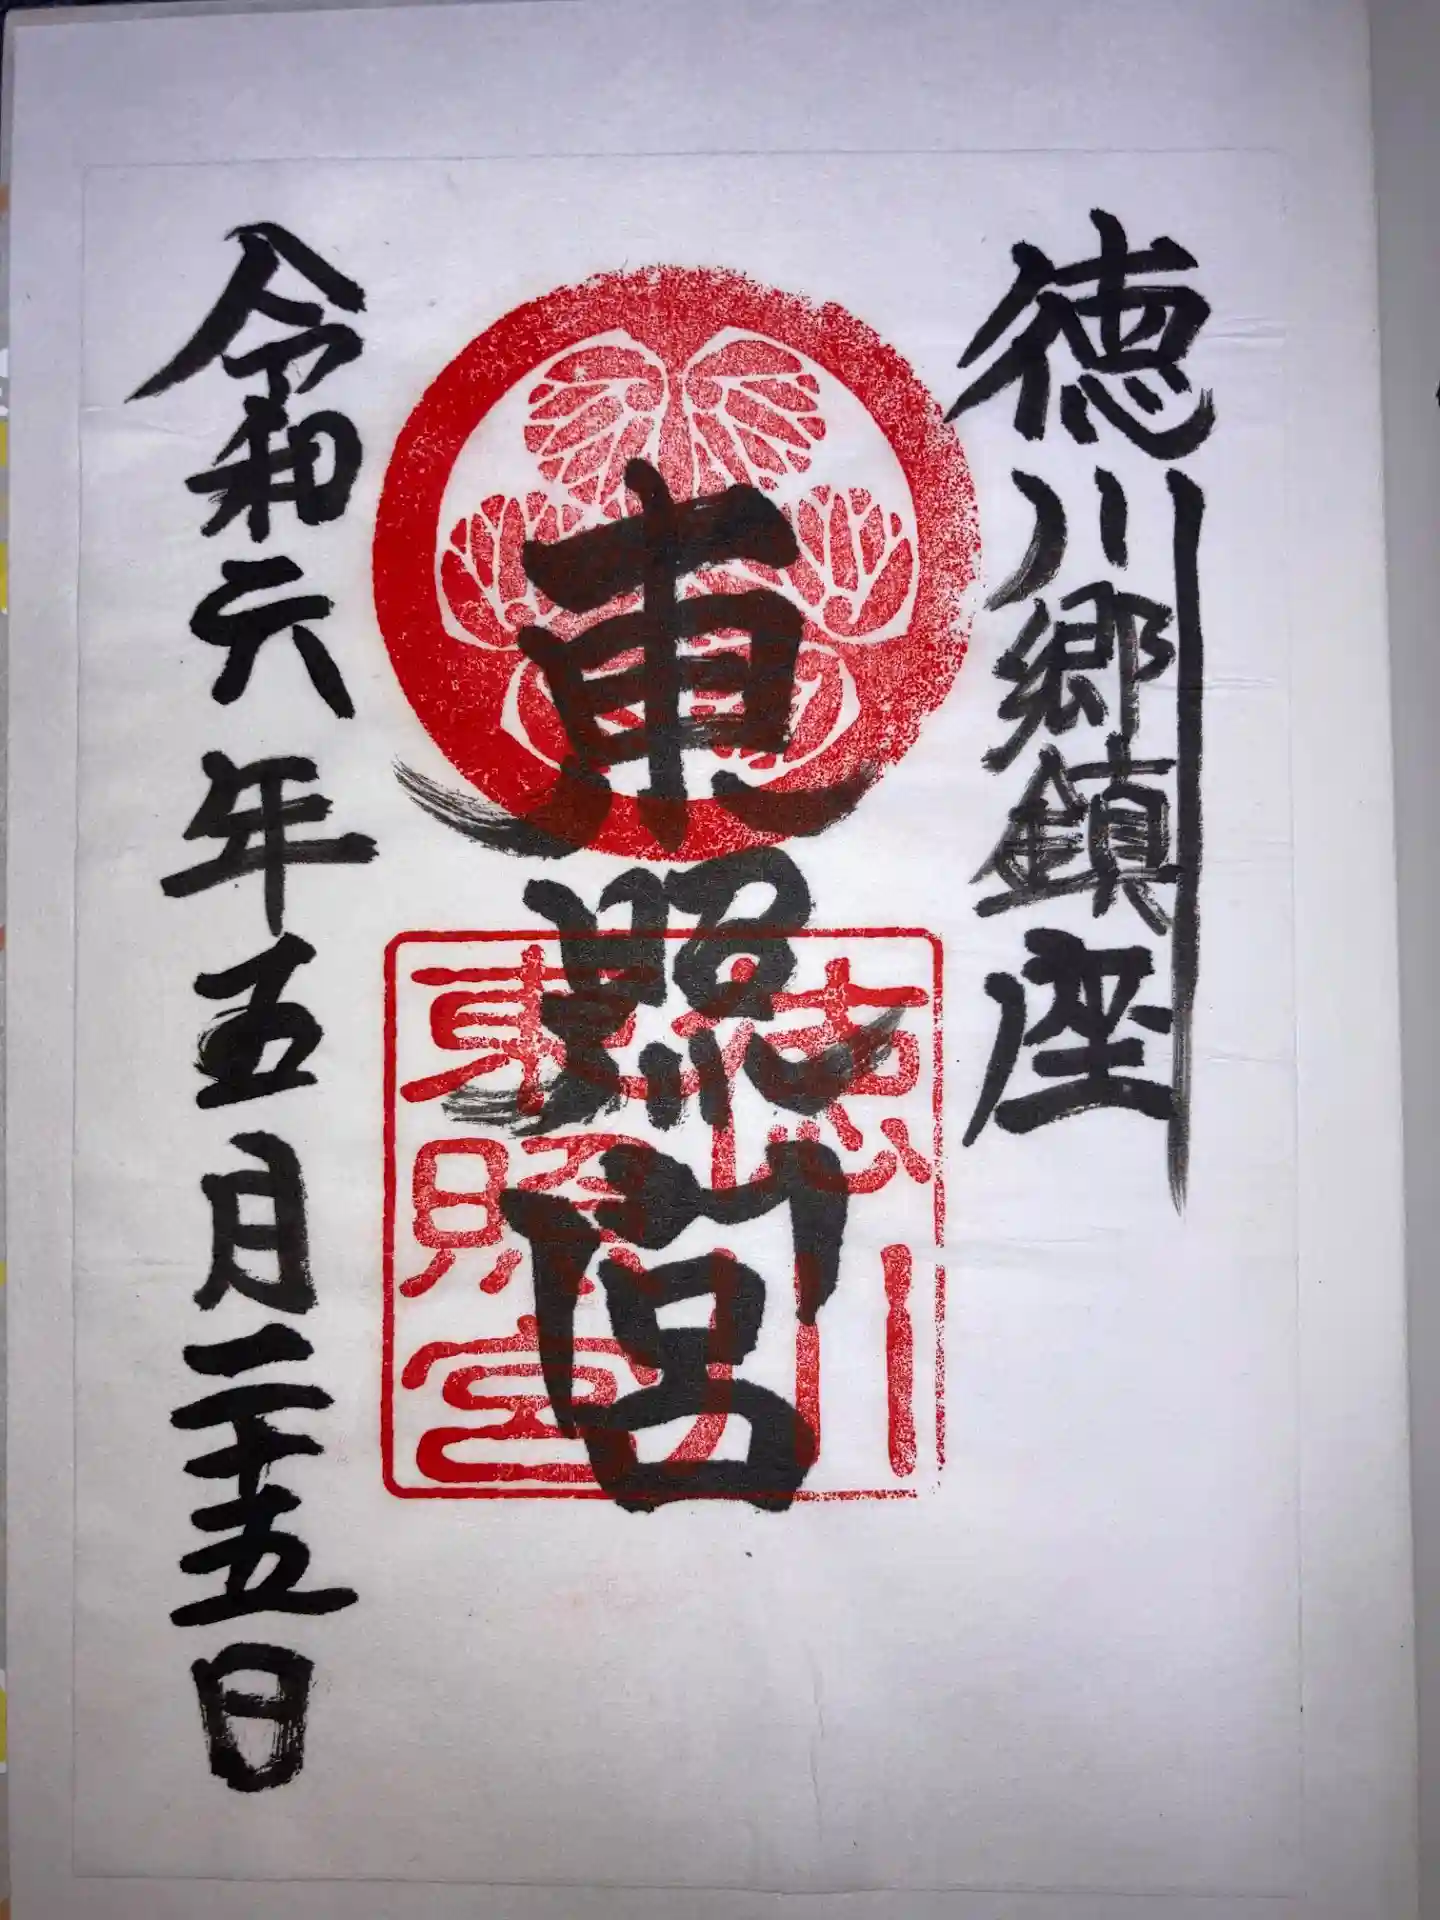 徳川郷鎮座
東照宮
徳川
東照宮
令和六年五月二十五日